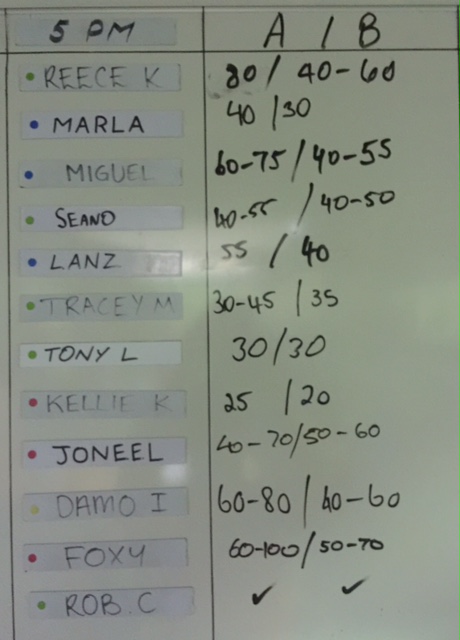 5 PM A / B
REECE K 80 / 40-60
MARLA 40 / 30
MIGUEL 60-75 / 40-55
SEANO 40-55 / 40-50
LANZ 55 / 40
TRACEY M 30-45 / 35
TONY L 30/30
KELLIE K 25 / 20
JONEEL 40-70/50-60
DAMO I 60-80 / 40-60
FOXY 60-100/50-70
ROB.C ✓ ✓